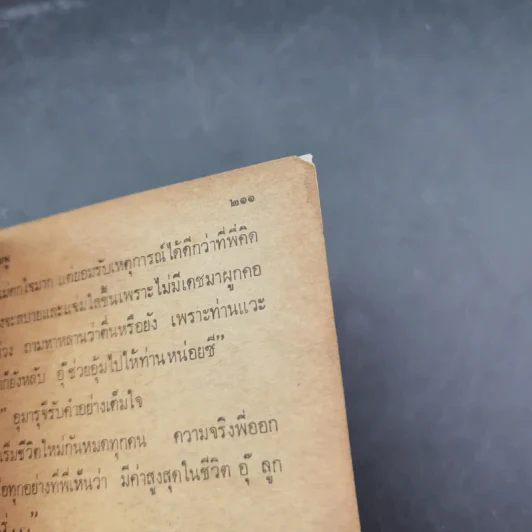 ๒๑๑
ตกใจมาก แต่ยอมรับเหตุการณ์ได้ดีกว่าที่พี่คิด
จะสบายและแจ่มใสขึ้นเพราะไม่มีเดชมาผูกคอ
ถามหาหลานว่าตื่นหรือยัง เพราะท่านแวะ
ก็ยังหลับ อุ๊ช่วยอุ้มไปให้ท่านหน่อยซี”
” อุมารุจีรับคำอย่างเต็มใจ
เริ่มชีวิตใหม่กันหมดทุกคน ความจริงพี่ออก
ทุกอย่างที่พี่เห็นว่า มีค่าสูงสุดในชีวิต อุ๊ ลูก